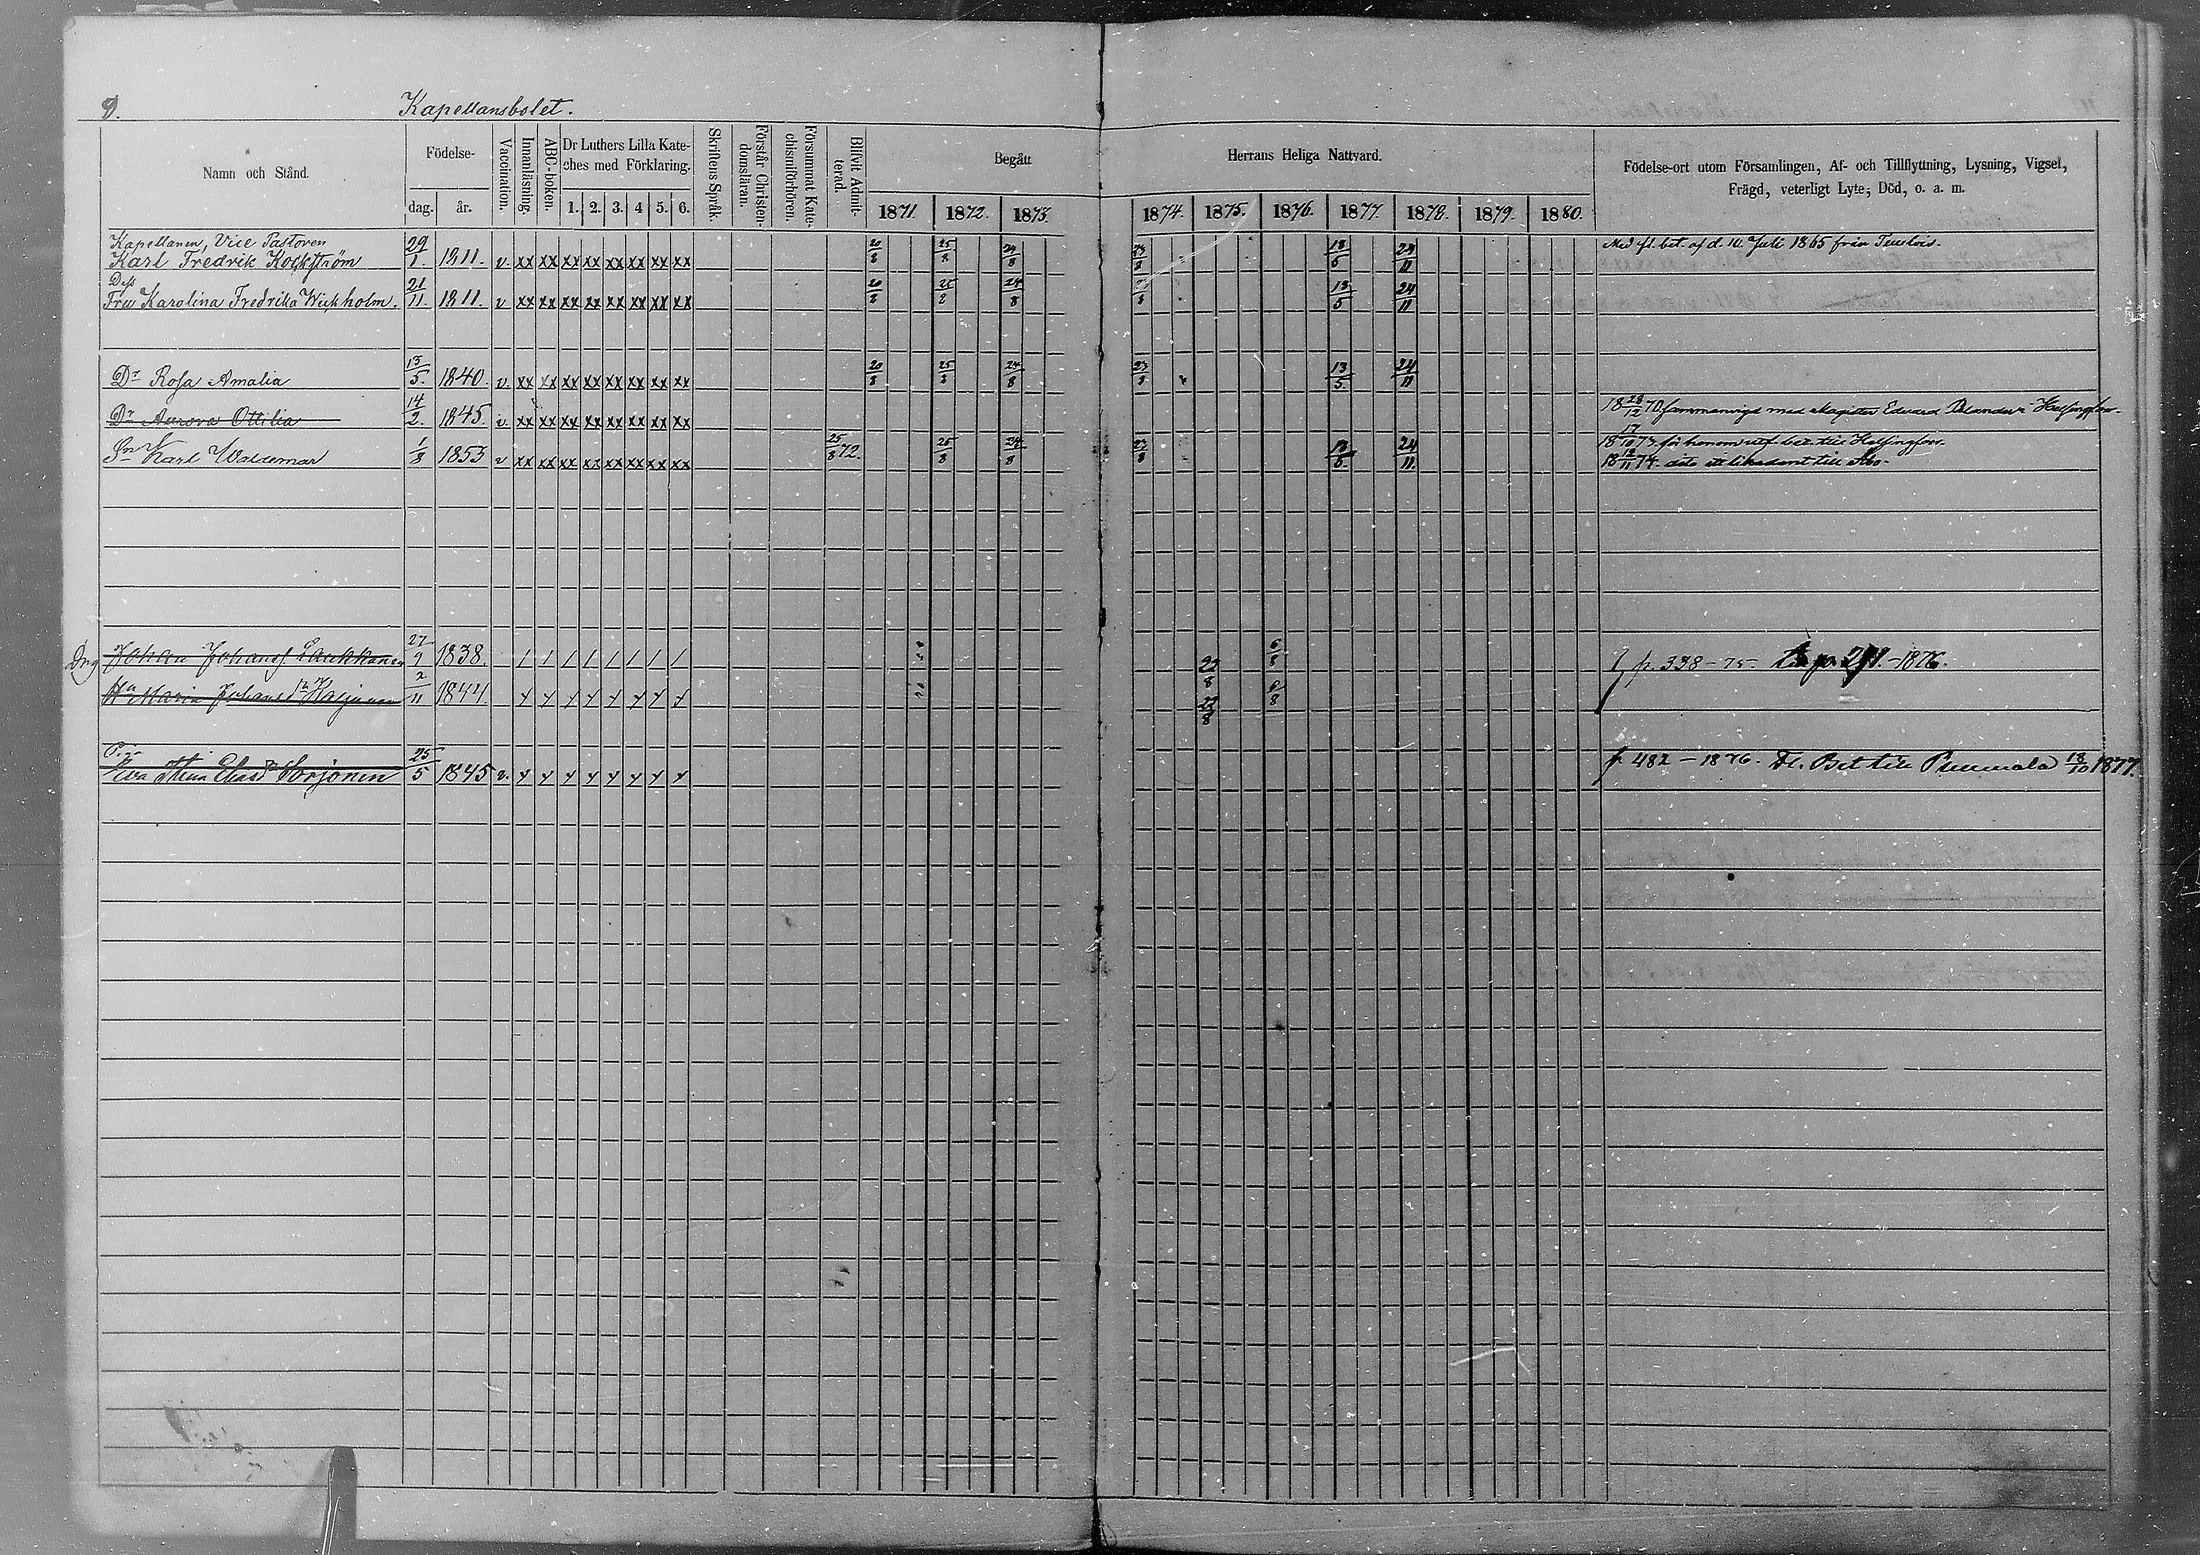 9.
Kapellansbolet.
Namn och Stånd.
Födelse-
dag.
år.
Vaccination.
Innanläsning.
ABC-boken.
Dr Luthers Lilla Kate-
ches med Förklaring.
1. 2. 3. 4 5. 6.
Skriftens Språk
Förstår Christen-
domsläran.
Försummat Kate-
chismiförhören.
Blifvit Admit-
terad.
Begått
Herrans Heliga Nattvard.
1871. 1872. 1873. 1874. 1875. 1876. 1877. 1878. 1879. 1880.
Födelse-ort utom Församlingen, Af- och Tillflyttning, Lysning, Vigsel,
Frägd, veterligt Lyte; Död, o. a. m.
Kapellanen, Vice Pastoren
Karl Fredrik Kockström 29/1. 1811. v. xx xx xx xx xx xx xx xx 25/8 24/8 13/5 24/11 Med fl. bet. af d. 10 Juli 1865 från
Dess
Fru Karolina Fredrika Wickholm. 21/11 1811. v xx xx xx xx xx xx xx xx 24/8 13/5 24/11
Dr Rosa Amalia 13/5. 1840. v. xx xx xx xx xx xx xx xx 24/8 13/5. 24/11
Dr Aurora Ottilia 14/2. 1845. v. xx xx xx xx xx xx xx xx 18 28/12 70 sammanvigd med Magister Edvard i Helsingfors.
Sn Karl Waldemar 1/8 1853 v xx xx xx xx xx xx xx xx 25/8 72. 25/8 24/8 13/5. 24/11. 18 17/10 73 för honom utf. bet. till Helsingfors.
18 12/11 74. dito till Åbo.
Drg Johan Johansf. Laukkanen 27/9 1838. / / / / / / / / 22/8 6/8 p. 338-75. 1876.
Hu Maria Johansdr 2/11 1844. x x x x x x x x 22/8 6/8
Eva Stina Eliasdr Sorjonen 25/5 1845 v. x x x x x x x x p 482-1876. Bet till Pummala 18/10 1877.